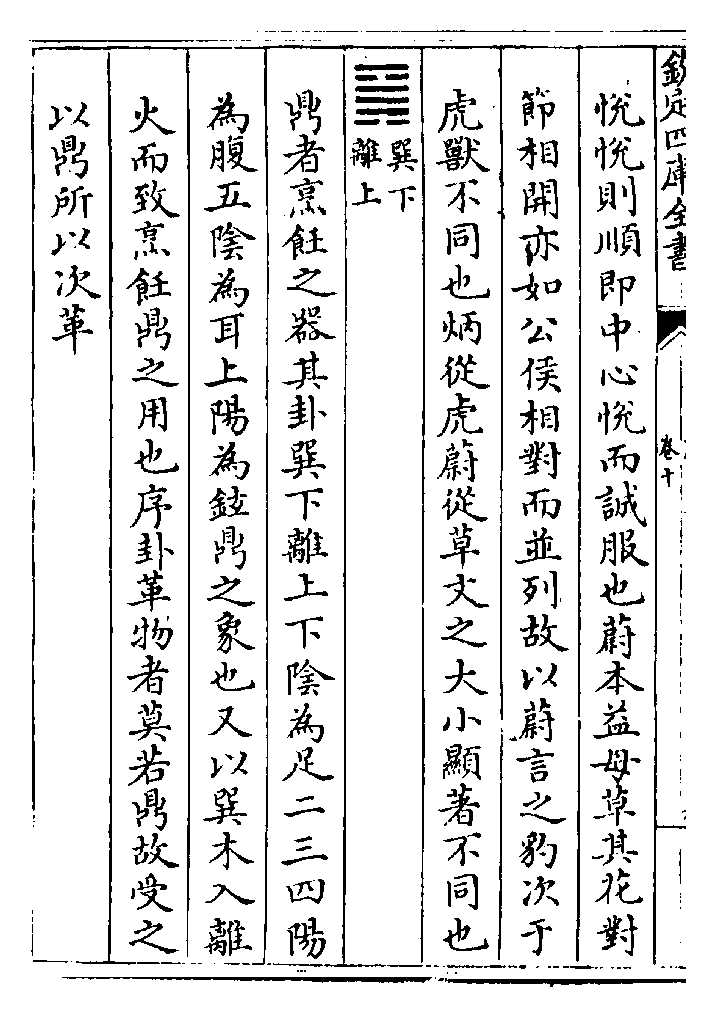 欽定四庫全書
卷十
悅悅則順即中心悅而誠服也蔚本益母草其花對
節相開亦如公侯相對而並列故以蔚言之豹次于
虎獸不同也炳從虎蔚從草文之大小顯著不同也
巽下
離上
鼎者烹飪之器其卦巽下離上下陰為足二三四陽
為腹五陰為耳上陽為鉉鼎之象也又以巽木入離
火而致烹飪鼎之用也序卦革物者莫若鼎故受之
以鼎所以次革